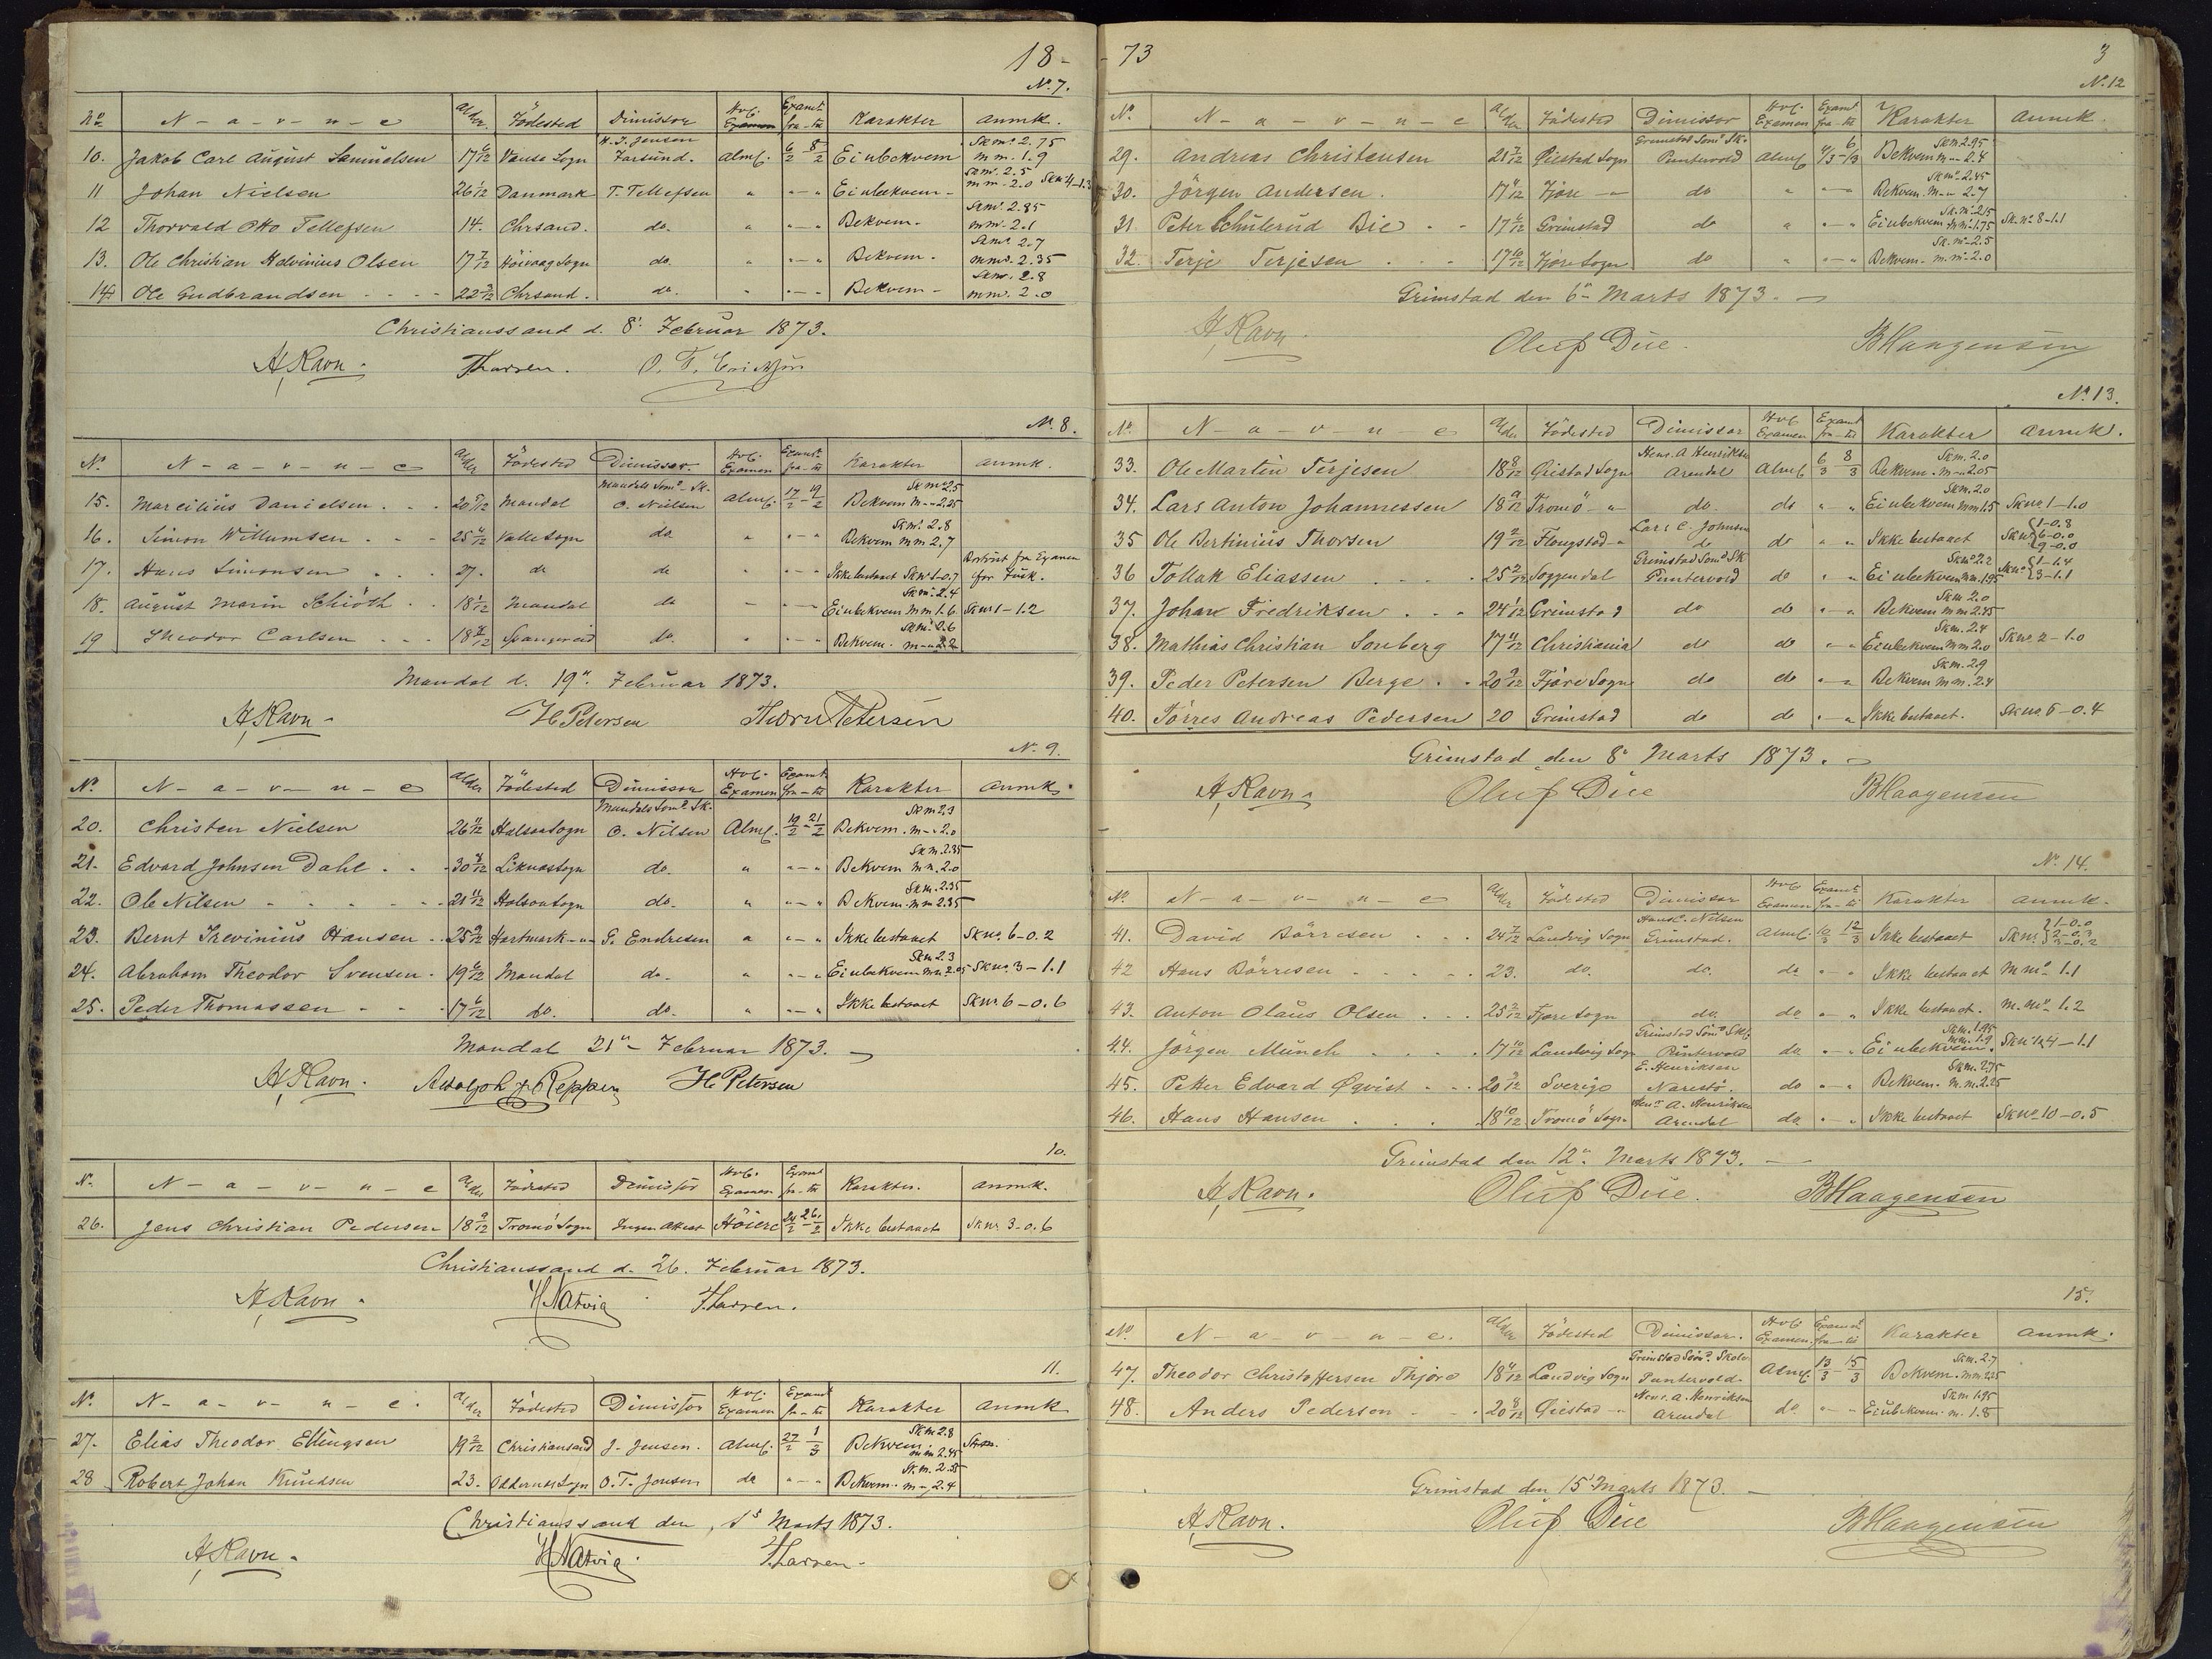 18-
No 7.
No N-a-v-n-e Alder. Födested Dimissor Hvlf. Examen Examt. fra-til Karakter Anmk.
10. Jakob Carl August Samuelsen 17 6/12 Vanse Sogn H. J. Jensen Farsund. Almf. 6/2 8/2 Ei ubekvem Skm. 2.75 mm. 1.9
11 Johan Nielsen 26 1/12 Danmark T. Tellefsen " "-" Ei ubekvem- Skm. 2.5 mm-2.0 Skno 4-1.3
12 Thorvald Otto Tellefsen 14. Chrsand. do. " "-" Bekvem. Skm. 2.85 mm. 2.1
13. Ole Christian Helvinius Olsen 17 7/12 Höivaag Sogn do. " "-" Bekvem. Skm. 2.7 mm. 2.35
14. Ole Gudbrandsen 22 3/12 Chrsand. do. " "-" Bekvem- Skm. 2.8 mm. 2.0
Christianssand d. 8. Februar 1873.
A. Ravn. Tharsen. O. T.
No 8.
No N-a-v-n-e Alder Födested Dimissor Hvlf. Examen Examt. fra-til Karakter Anmk.
15. Marcilius Danielsen 20 7/12 Mandal Mandals Sömd. Sk. O. Nielsen Almf. 17/2-19/2 Bekvem Skm 2.5 m-" 2.25
16. Simon Willumsen 25 4/12 Valle Sogn do " "-" Bekvem Skm. 2.8 mm 2.7
17. Hans Simonsen 27. do do " "-" Ikke bestaaet Skno 1-0.7 Bortvist fra Examen for Fusk.
18. August Marin Schiöth 18 1/12 Mandal do " "-" Ei ubekvem Skm. 2.4 mm 1.6 Skno 1-1.2
19 Theodor Carlsen 18 4/12 Spangereid do. " "-" Bekvem. Skm. 2.6 m-" 2.2
Mandal d. 19. Februar 1873.
A. Ravn- H Petersen Petersen
No 9.
No N-a-v-n-e Alder Födested Dimissor Hvlf. Examen Examt. fra-til Karakter Anmk.
20. Christen Nielsen 26 11/12 Halsaa Sogn Mandals Sömd. Sk. O. Nilsen Almf. 19/2-21/2 Bekvem. Skm 2.3 m-" 2.0
21. Edvard Johnsen Dahl 30 4/12 Liknæs Sogn do. " "-" Bekvem Skm. 2.35 mm. 2.0
22. Ole Nilsen 21 11/12 Halsaa Sogn do. " "-" Bekvem. Skm. 2.35 mm 2.35
23. Bernt Trevinius Hansen 25 9/12 Hartmark-"- G. Endresen " "-" Ikke bestaaet Skno. 6-0.2
24. Abraham Theodor Svensen 19 6/12 Mandal do. " "-" Ei ubekvem Skm 2.3 mm 2.05 Skno. 3-1.1
25. Peder Thomassen 17 6/12 do. do. " "-" Ikke bestaaet Skno. 6-0.6
Mandal 21- Februar 1873.
A. Ravn. Adolph Reppen H Petersen
10.
No. N-a-v-n-e Alder Födested Dimissor Hvlf. Examen Examt fra-til Karakter. Anmk.
26. Jens Christian Pedersen 18 9/12 Tromö Sogn Ingen Attest Höiere 24/2-26/2 Ikke bestaaet Skno 3-0.6
Christianssand d. 26. Februar 1873.
A. Ravn. H Natvig Tharsen.
11.
No. N-a-v-n-e. Alder Födested Dimissor Hvlf. Examen Examt fra-til Karakter Anmk
27. Elias Theodor Ellingsen 19 2/12 Christiansand J. Jensen. Almf. 27/2 1/3 Bekvem Skm 2.8 mm 2.45
28 Robert Johan Knudsen 23. Oddernes Sogn O. T. Jensen do "-" Bekvem. Sk. m. 2.55 m-" 2.4
Christianssand den 1s Marts 1873.
A. Ravn. H Natvig. Tharsen-
73 3
No. 12
No. N-a-v-n-e Alder Födested Dimissor Hvlf. Examen Examt fra-til Karakter Anmk.
29. Andreas Christensen 21 7/12 Öiestad Sogn Grimstad Sömd. Sk. Puntervold Almf 4/3-6/3 Bekvem Skm 2.95 m-" 2.4
30. Jörgen Andersen. 17 4/12 Fjære -"- do " "-" Bekvem. Skm. 2.45 m-" 2.7
31 Peter Schulerud Bie 17 6/12 Grimstad do " "-" Ei ubekvem Sk. m. 2.15 mm. 1.75 Sk. no. 8-1.1
32. Terje Terjesen 17 10/12 Fjære Sogn do " "-" Bekvem- Sk. m. 2.5 m. m. 2.0
Grimstad den 6 Marts 1873.
A. Ravn. Oluf Due. B Haagensen
No. 13.
No. N-a-v-n-e Alder Födested Dimissor Hvlf Examen Examt fra-til Karakter Anmk.
33. Ole Martin Terjesen 18 8/12 Öiestad Sogn Henr. A Henriksen Arendal Almf 6/3 8/3 Bekvem. Skm. 2.0 m-" 2.05
34. Lars Anton Johannessen 18 9/12 Tromö -"- do. do "-" Ei ubekvem Skm. 2.0 mm 1.5 Skno. 1-1.0
35 Ole Bertinius Thorsen 19 2/12 Flougstad-" Lars C. Johnsen do do "-" Ikke bestaaet Skno {1-0.8 6-0.0 9-0.0
36 Tollak Eliassen 25 2/12 Soggendal Grimstad Sömd Sk Puntervold do "-" Ei ubekvem Skm. 2.2 mm. 1.95 Skno {1-1.4 3-1.1
37. Johan Fredriksen 24 1/12 Grimstad do do "-" Bekvem Skm 2.0 mm 2.45
38. Mathias Christian Sonberg 17 11/12 Christiania do do "-" Ei ubekvem Skm. 2.4 mm 2.0 Skno. 2-1.0
39. Peder Petersen Berge 20 9/12 Fjære Sogn do do "-" Bekvem Skm. 2.9 mm. 2.4
40. Törres Andreas Pedersen 20 Grimstad do do "-" Ikke bestaaet. Skno. 6-0.4
Grimstad den 8 Marts 1873.
A. Ravn. Oluf Due B Haagensen
No. 14.
No. N-a-v-n-e Alder Födested Dimissor Hvlf Examen Examt fra-til Karakter Anmk.
41. David Börresen 24 7/12 Landvig Sogn Hans C. Nilsen Grimstad. Almf. 10/3 12/3 Ikke bestaaet Skno. {1-0.0 2-0.3 3-0.2
42 Hans Börresen 23. do. do. do "-" Ikke bestaaet M mo 1.1
43. Anton Olaus Olsen 25 2/12 Fjære Sogn do. do "-" Ikke bestaaet. m. mo 1.2
44. Jörgen Münch 17 10/12 Landvig Sogn Grimstad Sömd Sk. Puntervold do. "-" Ei ubekvem. Skm. 1.95 mm. 1.9 Skno 4-1.1
45. Petter Edvard Øqvist 20 3/12 Sverige E. Henriksen Narestö. do "-" Bekvem. Skm. 2.75 m. m. 2.25
46. Hans Hansen 18 10/12 Tromö Sogn Henr. A. Henriksen Arendal do. "-" Ikke bestaaet Skno 10-0.5
Grimstad den 12. Marts 1873.
A. Ravn. Oluf Due. B Haagensen
15.
No N-a-v-n-e. Alder Födested Dimissor. Hvlf Examen Examt fra-til Karakter Anmk.
47. Theodor Christoffersen Thjöre 18 4/12 Landvig Sogn Grimstad Sömd. Skole Puntervold. Almf. 13/3-15/3 Bekvem. Skm. 2.7 mm 2.25
48. Anders Pedersen 20 8/12 Öiestad -" Henr. A. Henriksen Arendal do. "-" Ei ubekvem. Skm 1.95 m. 1.8
Grimstad den 15 Marts 1873.
A. Ravn. Oluf Due B Haagensen